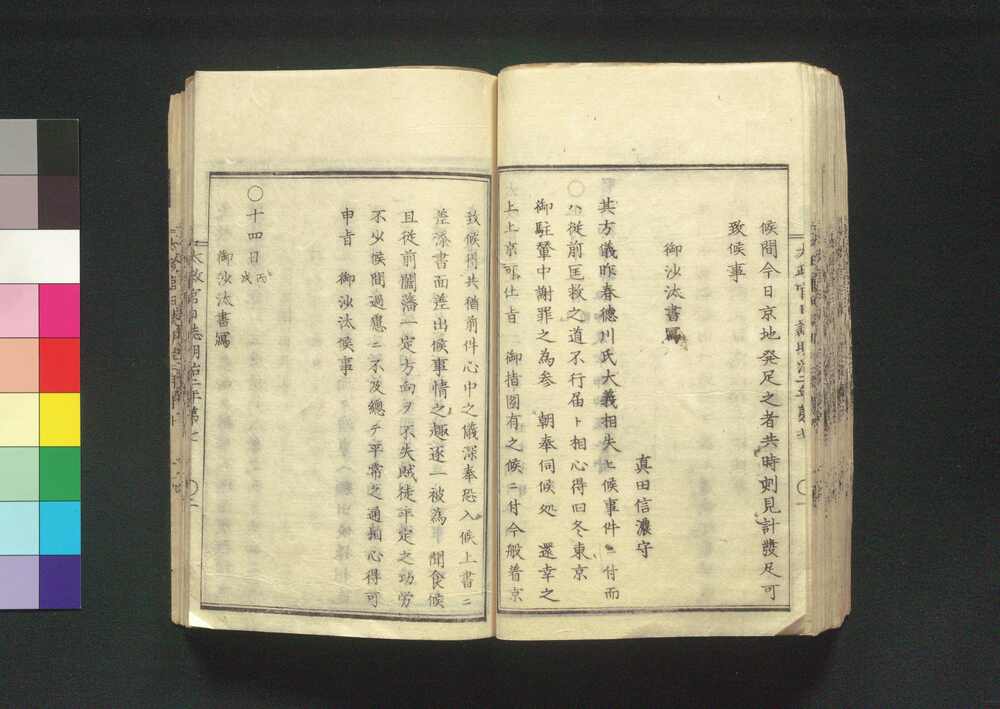 候間今日京地発足之者共時刻見計発足可
致候事
御沙汰書写
真田信濃守
其方儀昨春徳川氏大義相失ヒ候事件ニ付而
ハ従前匡救之道不行届ト相心得旧冬東京
御駐輦中謝罪之為参　朝奉伺候処　還幸之
上上京可仕旨　御指図有之候ニ付今般着京
致候得共猶前件心中之儀深奉恐入候上書ニ
差添書面差出候事情之趣逐一被為　聞食候
且従前闔藩一定方向ヲ不失賊徒平定之功労
不少候間過慮ニ不及総テ平常之通相心得可
申旨　御沙汰候事
〇十四日丙戌
御沙汰書写
太政官日誌明治二年第七